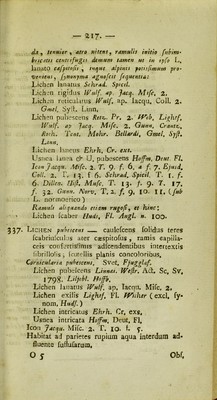 — 217. —
da, tenuior, atra nitens, ramulis initio subim-
bricatis contextusque demum tamen ut in ipso L.
lanato cæspitosis, inque alpinis potissimum pro-
veniens, synonyma agnoscit sequentia:
Lichen lanatus Schrad. Spicil.
Lichen rigidus Wulf. ap. Jacq. Misc. 2.
Lichen reticulatus Wulf. ap. Jacqu. Coll. 2.
Gmel. Syst. Linn.
Lichen pubescens Retz. Pr. 2. Web, Lighef,
Wulf. ap Jacq. Misc. 2. Gunn, Crantz,
Roth. Tent. Mohr. Bellardi, Gmel, Syst.
Linn.
Lichen laneus Ehrh, Cr. exs.
Usnea lanea & U. pubescens Hoffm, Deut. Fl.
Icon Jacqu. Misc. 2. T. 9. f. 6. & f. 7. Ejusd.
Coll. 2. T. 13. f. 6. Schrad, Spicil. T. 1. f.
6. Dillen. Hist. Musc. T. 13. f. 9. T. 17.
f. 32. Gunn. Norv, T. 2. f. 9. 10. 11. (sub
L. normoerico)
Ramulis aliquando etiam rugosis, et hinc:
Lichen scaber Huds, Fl. Angl. n. 100.
337. LICHEN pubescens — caulescens solidus teres
scabriusculus ater cæspitosus, ramis capilla-
ceis confertissimus adscendentibus intertextis
fibrillosis, scutellis planis concoloribus,
Cornicularia pubescens, Svet, Fjuggelaf.
Lichen pubescens Linnei. Westr. Act. Sc, Sv,
1798. Liljebl. Hoffb,
Lichen lanatus Wulf, ap, Jacqu. Misc. 2.
Lichen exilis Lighef, Fl. Wither (excl, sy-
nom, Huds.)
Lichen intricatus Ehrh. Cr, exs,
Usnea intricata Hoffm, Deut, Fl,
Icon Jacqu. Misc. 2. T. 10. f. 5.
Habitat ad parietes rupium aqua interdum ad-
fluente suffusarum,
O 5 Obs,